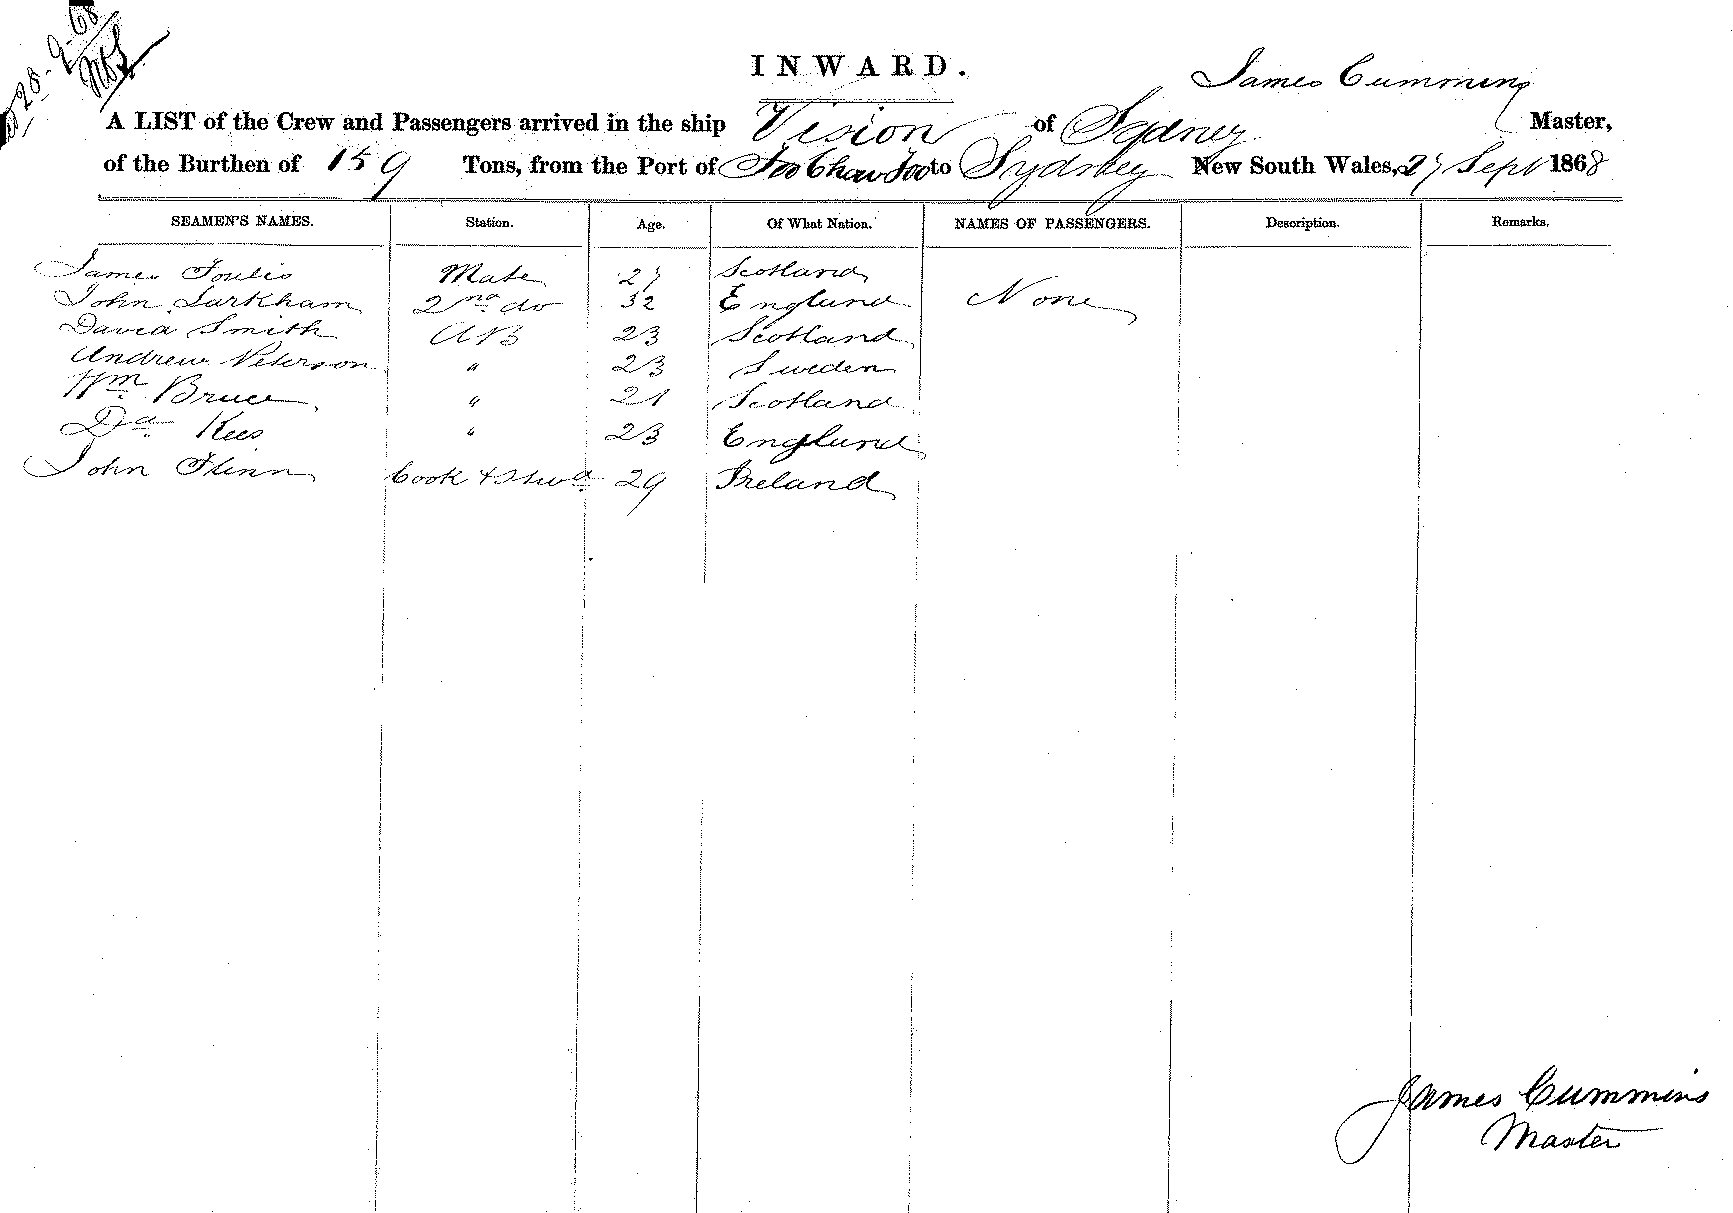 28-9-68
INWARD.
James Cummins
A LIST of the Crew and Passengers arrived in the ship Vision of Sydney Master,
of the Burthen of 159 Tons, from the Port of Foo Chow Foo to Sydney New South Wales, 27 Sept 1868
SEAMEN'S NAMES. Station. Age. Of What Nation. NAMES OF PASSENGERS. Description. Remarks.
James Foulis Mate 27 Scotland
John Larkham 2nd do 32 England None
David Smith AB 23 Scotland
Andrew Peterson " 23 Sweden
Wm Bruce " 21 Scotland
Dd Rees " 23 England
John Flinn Cook & Stwd 29 Ireland
James Cummins
Master